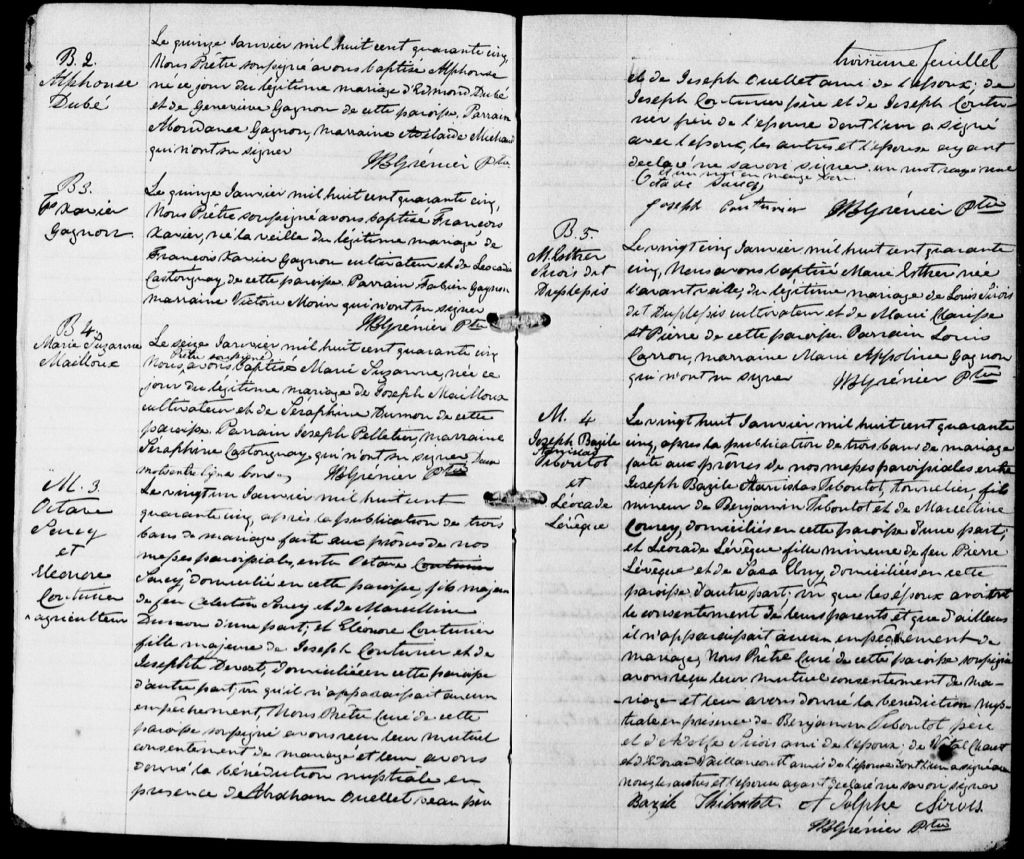 B. 2.
Alphonse
Dubé
Le quinze Janvier mil huit cent quarante cinq
Nous Prêtre soussigné avons baptisé Alphonse
né ce jour du légitime mariage d'Edmond Dubé
et de Geneviève Gagnon de cette paroisse. Parrain
Abondance Gagnon, marraine Adelaïde Michaud
qui n'ont su signer
JBGrénier Ptre
B 3.
Fs Xavier
Gagnon
Le quinze Janvier mil huit cent quarante cinq,
Nous Prêtre soussigné avons baptisé François
Xavier, né la veille du légitime mariage de
François Xavier Gagnon cultivateur et de Leocadie
Castonguay de cette paroisse. Parrain Fabien Gagnon
marraine Victoire Morin qui n'ont su signer
JBGrénier Ptre
B 4.
Marie Suzanne
Mailloux
Le seize Janvier mil huit cent quarante cinq
Prêtre soussigné
Nous, avons baptisé Marie Suzanne, née ce
jour du légitime mariage de Joseph Mailloux
cultivateur et de Séraphine Dumon de cette
paroisse. Parrain Joseph Pelletier, marraine
Séraphine Castonguay, qui n'ont su signer. Deux
mots entre ligne bons.
JBGrénier Ptre
M. 3.
Octave
Soucy
et
Eleonore
Couturier
agriculteur
Le vingt un Janvier mil huit cent
quarante cinq, après la publication de trois
bans de mariage faite aux prônes de nos
messes paroissiales, entre Octave Couturier
Soucy, domicilié en cette paroisse, fils majeur
de feu Celestin Soucy et de Marcelline
d'une part; et Eléonore Couturier
fille majeure de Joseph Couturier et de
Josephte domiciliée en cette paroisse
d'autre part, vu qu'il n'apparaissait aucun
empêchement, Nous Prêtre Curé de cette
paroisse soussigné avons reçu leur mutuel
consentement de mariage et leur avons
donné la bénédiction nuptiale en
présence de Abraham Ouellet beau père
troisième feuillet
et de Joseph Ouellet ami de l'époux; de
Joseph Couturier père et de Joseph Coutu-
rier frère de l'épouse dont l'un a signé
avec l'époux, les autres et l'épouse ayant
declaré ne savoir signer. un mot rayé nul
Et un mot en marge bon.
Octave Soucy
Joseph Couturier JBGrénier Ptre
B. 5.
M. Esther
Sirois dit
Duplepis
Le vingt cinq Janvier mil huit cent quarante
cinq, Nous avons baptisé Marie Esther née
l'avant veille, du légitime mariage de Louis Sirois
dit Duplepis cultivateur et de Marie Clarisse
St Pierre de cette paroisse Parrain Louis
Carron, marraine Marie Appoline Gagnon
qui n'ont su signer JBGrénier Ptre
M. 4
Joseph Bazile
Stanislas
Tiboutot
et
Léocade
Lévêque
Le vingt huit Janvier mil huit cent quarante
cinq, après la publication de trois bans de mariage
faite aux prônes de nos messes paroissiales entre
Joseph Bazile Stanislas Tiboutot, tonnelier, fils
mineur de Benjamin Tiboutot et de Marcelline
domiciliés en cette paroisse d'une part;
et Léocade Lévêque fille mineure de feu Pierre
Lévêque et de domiciliées en cette
paroisse d'autre part; vu que les époux avaient
le consentement de leurs parents et que d'ailleurs
il n'apparaissait aucun empêchement de
mariage, Nous Prêtre Curé de cette paroisse soussigné
avons reçu leur mutuel consentement de ma-
-riage et leur avons donné la bénédiction nup-
tiale en présence de Benjamin Tiboutot père
et d'Adolfe Sirois ami de l'époux; de Vital
et d'Edouard Vaillancourt amis de l'épouse dont l'un a signé avec
nous, les autres et l'épouse ayant declaré ne savoir signer
Bazile Thiboutot Adolphe Sirois
JBGrénier Ptre